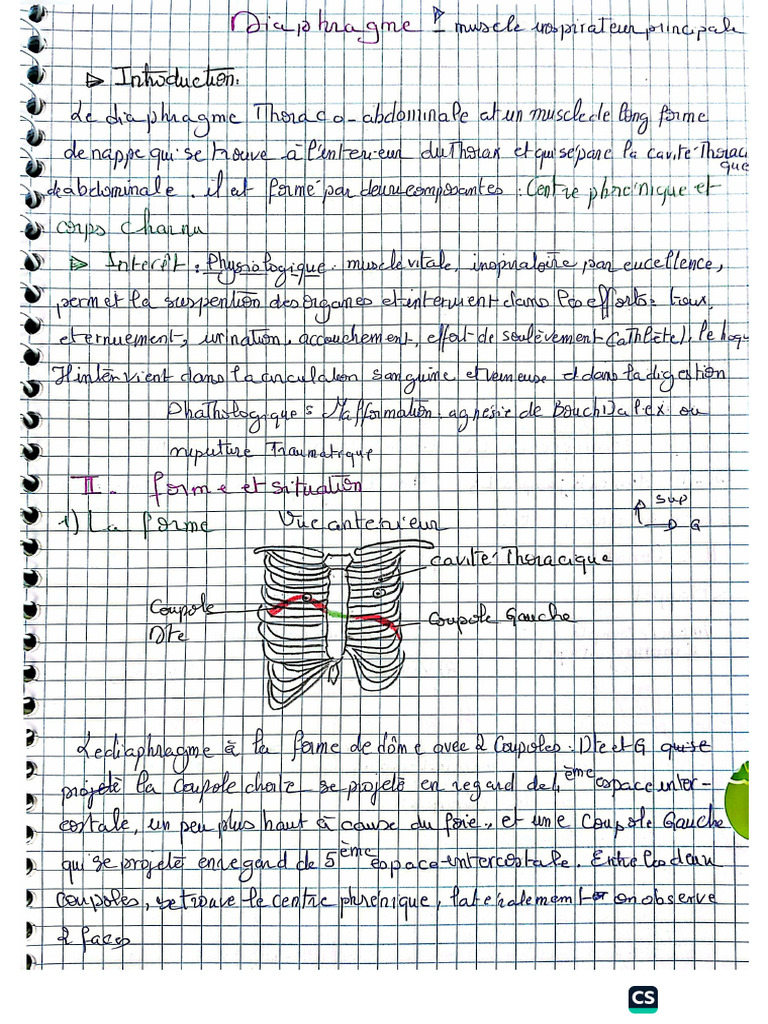 Diaphragme : muscle inspirateur principale
Introduction:
Le diaphragme Thoraco-abdominale et un muscle de long forme
de nappe qui se trouve à l'interieur du Thorax et qui sépare la cavité Thoraci
que
de abdominale. il et formé par deux composantes : Centre phrénique et
corps charnu
Interêt : Physiologique : muscle vitale, inspiratoire par excellence,
permet la suspention des organes et intervient dans les efforts : toux,
eternuement, urination, accouchement, effort de soulèvement (athlète), le hoque
Il intervient dans la circulation sanguine et veineuse et dans la digestion
Phathologique : Malformation : agnesie de Bouchdalex ou
rupture Traumatique
II. forme et situation
1) La forme Vue anterieur
Sup
D G
cavité Thoracique
Coupole
Dte
Coupole Gauche
Le diaphragme à la forme de dôme avec 2 Coupoles : Dte et G qui se
projetè la coupole choite se projetè en regard de 4ème espace inter-
costale, un peu plus haut à cause du foie., et une Coupole Gauche
qui se projetè en regard de 5ème espace-intercostale. Entre les deux
coupoles, se trouve le centre phrénique, latéralement on observe
2 faces
CS